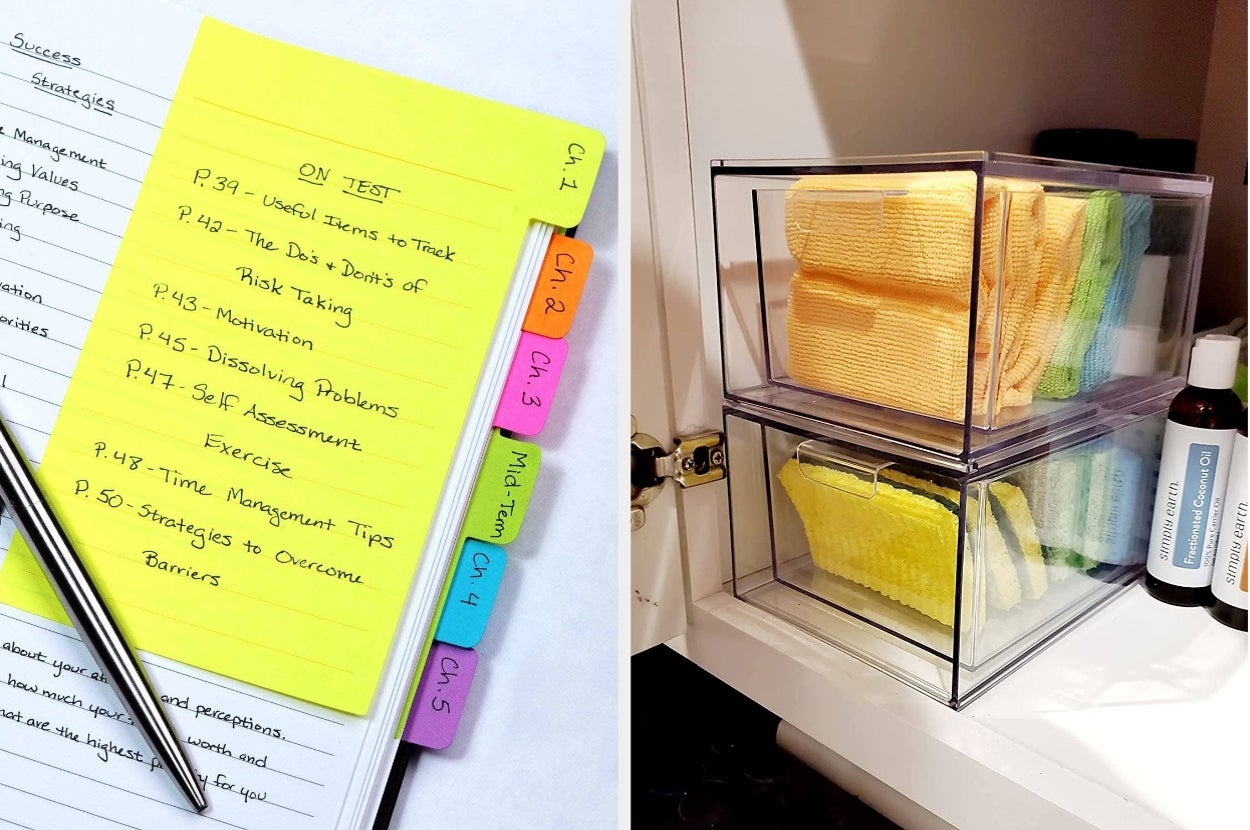 Success
Strategies
Management
ing Values
ng Purpose
ing
vation
orities
ON TEST
P. 39 - Useful Items to Track
P. 42 - The Do's + Dont's of
Risk Taking
P. 43 - Motivation
P. 45 - Dissolving Problems
P. 47 - Self Assessment
Exercise
P. 48 - Time Management Tips
P. 50 - Strategies to Overcome
Barriers
Ch. 1
Ch. 2
Ch. 3
Mid-Term
Ch. 4
Ch. 5
about your and perceptions.
how much your worth and
hat are the highest for you
simply earth.
Fractionated Coconut Oil
100% Pure Carrier Oil
simply earth.